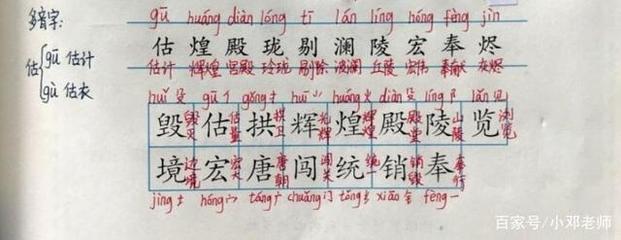 多音字:
估 gū 估计
gù 估衣
gū huáng diàn lóng tī lán líng hóng fèng jìn
估 煌 殿 珑 剔 澜 陵 宏 奉 烬
估计 辉煌 宫殿 玲珑 剔除 波澜 丘陵 宏伟 奉献 灰烬
huǐ 殳 gū 亻 gǒng 扌 huī ⺌ huáng 火 diàn 殳 líng 阝 lǎn 见
毁 毁灭 估 估量 拱 拱卫 辉 光辉 煌 辉煌 殿 殿堂 陵 山陵 览 浏览
境 边境 宏 宏大 唐 唐朝 闯 闯关 统 统一 销 销毁 奉 奉行
jìng 土 hóng 宀 táng 广 chuǎng 门 tǒng 纟 xiāo 钅 fèng 一
百家号/小邓老师